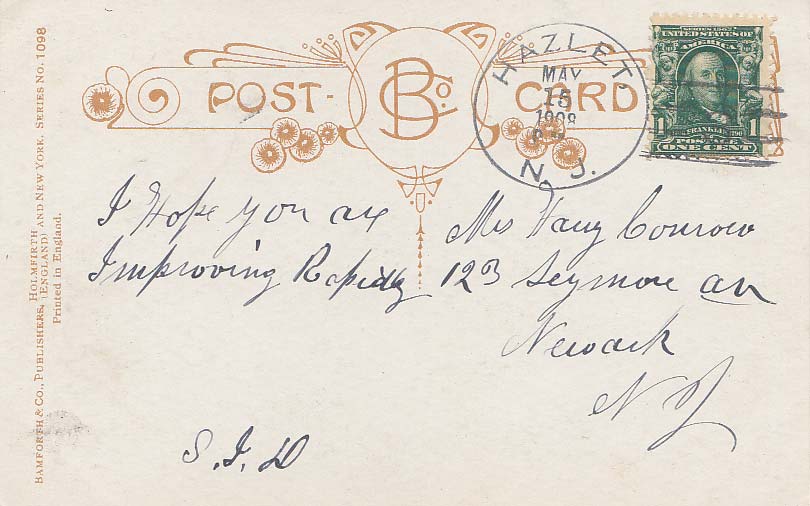 BAMFORTH & CO., PUBLISHERS, HOLMFIRTH (ENGLAND) AND NEW YORK. SERIES NO. 1098
Printed in England.
POST-CARD
B Co.
HAZLET.
MAY
15
1908
N. J.
SERIES 1902
UNITED STATES OF
AMERICA
1 FRANKLIN 1
POSTAGE
ONE CENT
I Hope you are
Improving Rapidly
S. I. D
Mrs Conrow
123 Seymore av
Newark
N J